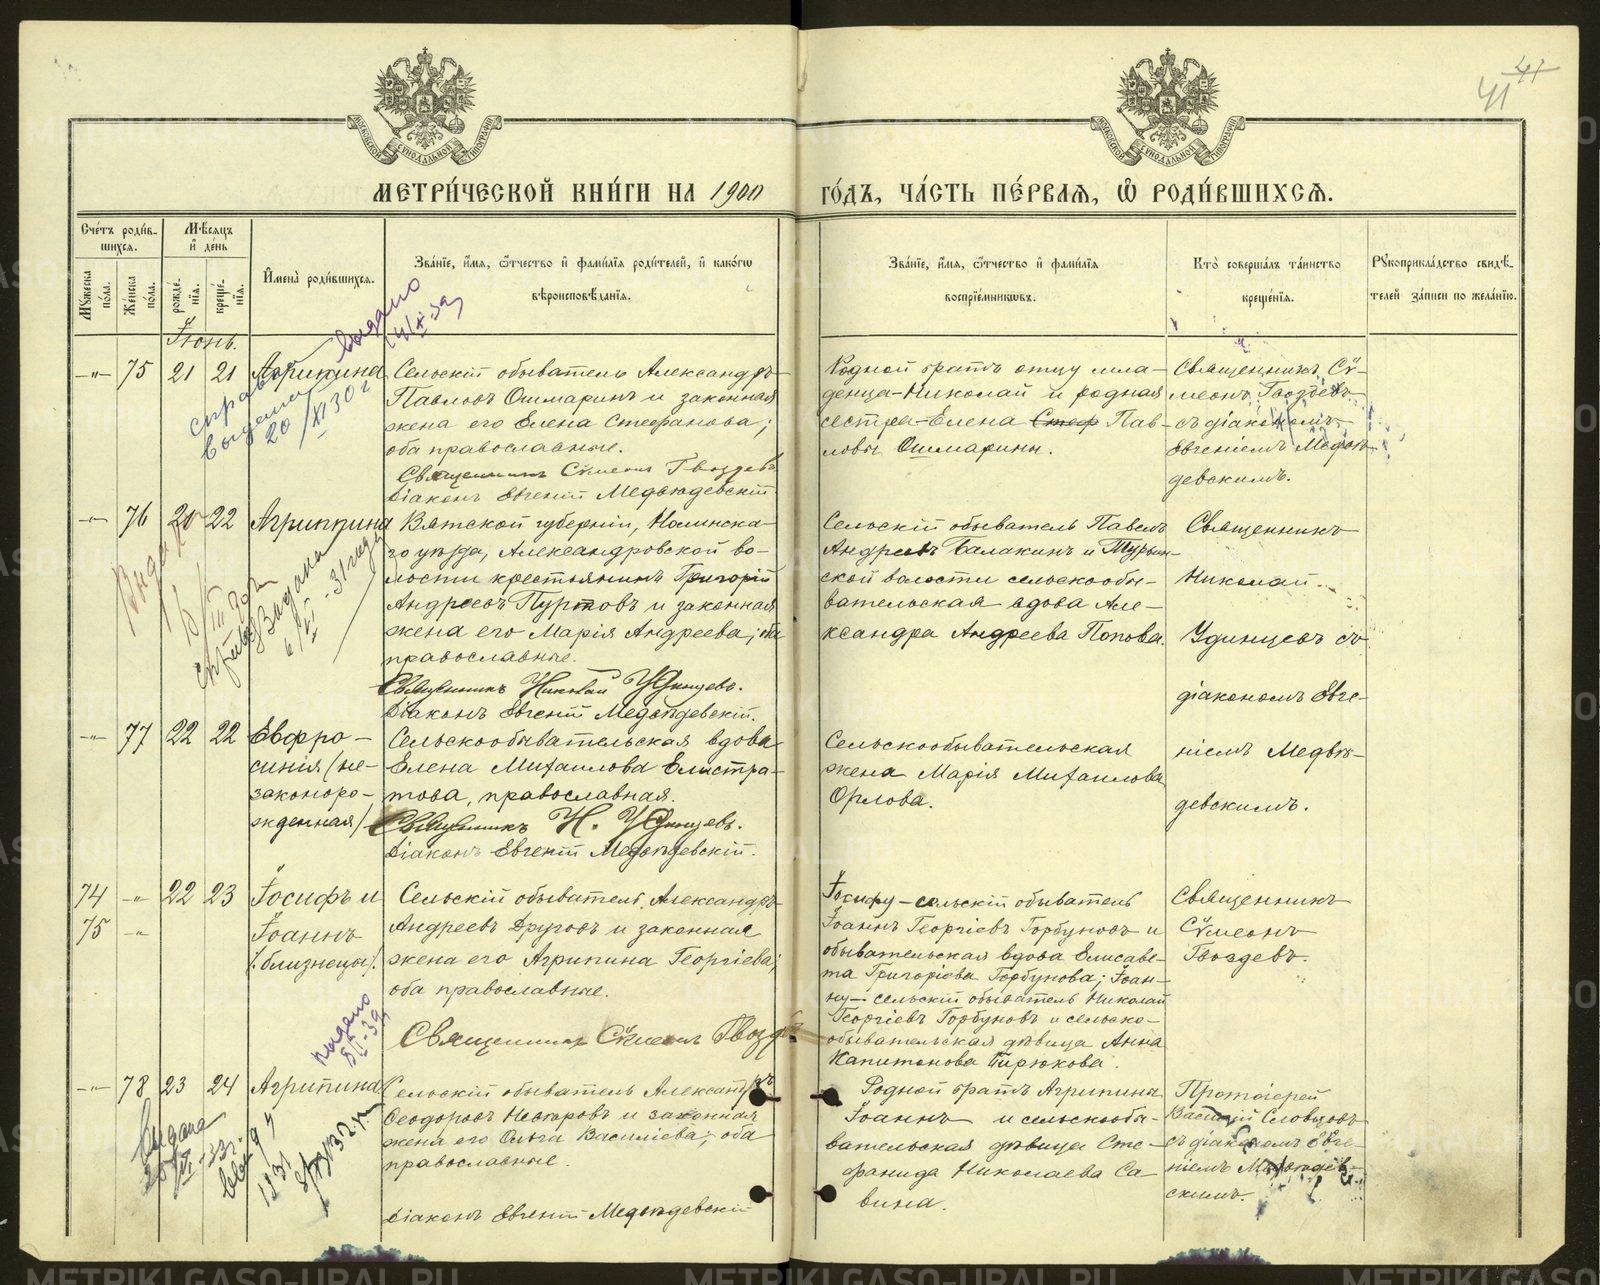 41
41
МОСКОВСКОЙ СѴНОДАЛЬНОЙ ТИПОГРАФІИ
МОСКОВСКОЙ СѴНОДАЛЬНОЙ ТИПОГРАФІИ
МЕТРИ́ЧЕСКОЙ КНИ́ГИ НА 1900
ГО́ДЪ, ЧА́СТЬ ПЕ́РВАѦ, Ѡ РОДИ́ВШИХСѦ.
Сче́тъ роди́в-
шихсѧ.
Мꙋжеска по́ла.
Же́нска по́ла.
Мѣ́сѧцъ и҆ де́нь
рожде́-
нїѧ.
креще́-
нїѧ.
И҆мена̀ роди́вшихсѧ.
Зва́нїе, и҆́мѧ, ѻ҆́тчество и҆ фами́лїѧ роди́телей, и҆ како́гѡ
вѣроисповѣ́данїѧ.
Зва́нїе, и҆́мѧ, ѻ҆́тчество и҆ фами́лїѧ
воспрїе́мникѡвъ.
Кто̀ соверша́лъ та́инство
креще́нїѧ.
Рꙋкоприкла́дство свидѣ́-
телей за́писи по жела́нїю.
Іюнь.
выдано
-"- 75 21 21 Агрипина
справка
выдана
20/XI 30 г
Сельскій обыватель Александръ
Павловъ Ошмаринъ и законная
жена его Елена Стефанова;
оба православные.
Священникъ Сѵмеонъ Гвоздевъ
Діаконъ Евгеній Медвѣдевскій
Родной братъ отцу мла-
денца-Николай и родная
сестра-Елена Стеф Пав-
ловы Ошмарины.
Священникъ Сѵ-
меонъ Гвоздевъ
съ діакономъ
Евгеніемъ Медвѣ-
девскимъ.
-"- 76 20 22 Агриппина
Выдано
Выдана
31 года
Вятской губерніи, Нолинска-
го уѣзда, Александровской во-
лости крестьянинъ Григорій
Андреевъ Пуртовъ и законная
жена его Марія Андреева; оба
православные.
Священникъ Николай Удинцевъ.
Діаконъ Евгеній Медвѣдевскій.
Сельскій обыватель Павелъ
Андреевъ Балакинъ и Турьин-
ской волости сельскообы-
вательская вдова Але-
ксандра Андреева Попова.
Священникъ
Николай
Удинцевъ съ
діакономъ Евге-
ніемъ Медвѣ-
девскимъ.
-"- 77 22 22 Евфро-
синія (не-
законоро-
жденная)
Сельскообывательская вдова
Елена Михаилова Елистра-
това, православная.
Священникъ Н. Удинцевъ.
Діаконъ Евгеній Медвѣдевскій.
Сельскообывательская
жена Марія Михаилова
Орлова.
74 -"- 22 23 Іосифъ и
75 -"- Іоаннъ
/близнецы/.
Сельскій обыватель Александръ
Андреевъ Друговъ и законная
жена его Агрипина Георгіева;
оба православные.
Священникъ Сѵмеонъ Гвоздевъ
Іосифу-сельскій обыватель
Іоаннъ Георгіевъ Горбуновъ и
обывательская вдова Елисаве-
та Григоріева Горбунова; Іоан-
ну-сельскій обыватель Николай
Георгіевъ Горбуновъ и сельско-
обывательская дѣвица Анна
Капитонова Бирюкова.
Священникъ
Сѵмеонъ
Гвоздевъ.
выдано
-"- 78 23 24 Агрипина
Выдана
Сельскій обыватель Александръ
Ѳеодоровъ и законная
жена его Ольга Василіева; оба
православные.
Діаконъ Евгеній Медвѣдевскій
Родной братъ Агрипины
Іоаннъ и сельскообы-
вательская дѣвица Сте-
фанида Николаева Са-
вина.
Протоіерей
Василій Словцовъ
съ діакономъ Евге-
ніемъ Медвѣдев-
скимъ.
METRIKI.GASO-URAL.RU